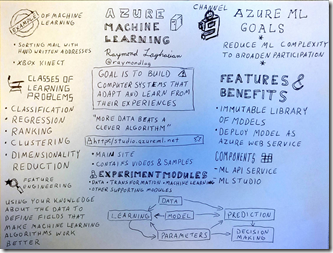 EXAMPLE
OF MACHINE
LEARNING
• SORTING MAIL WITH
HAND WRITTEN ADDRESSES
• XBOX KINECT
CLASSES OF
LEARNING
PROBLEMS
• CLASSIFICATION
• REGRESSION
• RANKING
• CLUSTERING
• DIMENSIONALITY
REDUCTION
FEATURE
ENGINEERING
USING YOUR KNOWLEDGE
ABOUT THE DATA TO
DEFINE FIELDS THAT
MAKE MACHINE LEARNING
ALGORITHMS WORK
BETTER
AZURE
MACHINE
LEARNING
Raymond Laghaeian
@raymondlag
GOAL IS TO BUILD
COMPUTER SYSTEMS THAT
ADAPT AND LEARN FROM
THEIR EXPERIENCES
"MORE DATA BEATS A
CLEVER ALGORITHM"
http://studio.azureml.net
• MAIN SITE
• CONTAINS VIDEOS & SAMPLES
EXPERIMENT MODULES
• DATA • TRANSFORMATION • MACHINE LEARNING
• OTHER SUPPORTING MODULES
DATA
LEARNING
MODEL
PREDICTION
PARAMETERS
DECISION
MAKING
CHANNEL
9
AZURE ML
GOALS
REDUCE ML COMPLEXITY
TO BROADEN PARTICIPATION
FEATURES &
BENEFITS
• IMMUTABLE LIBRARY
OF MODELS
• DEPLOY MODEL AS
AZURE WEB SERVICE
COMPONENTS
ML API SERVICE
ML STUDIO